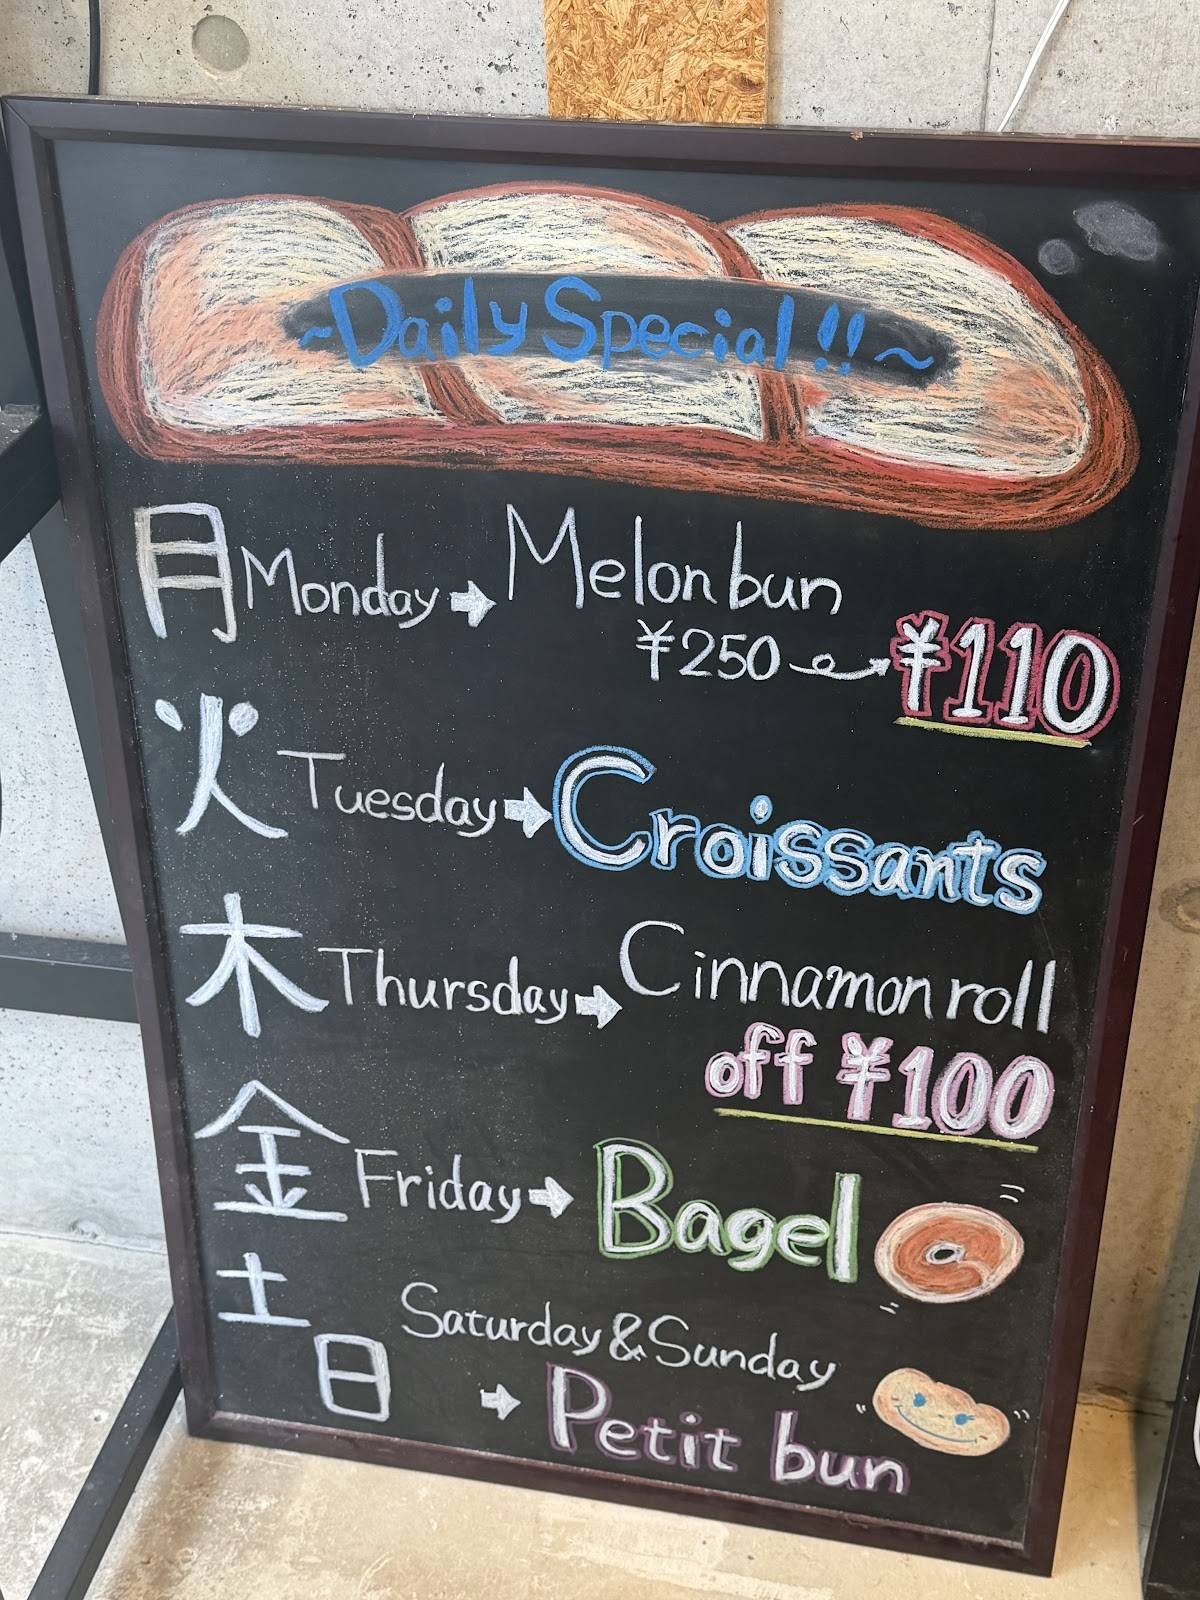 ~Daily Special!!~
月 Monday → Melon bun
¥250 → ¥110
火 Tuesday → Croissants
木 Thursday → Cinnamon roll
off ¥100
金 Friday → Bagel
土 Saturday & Sunday
日 → Petit bun